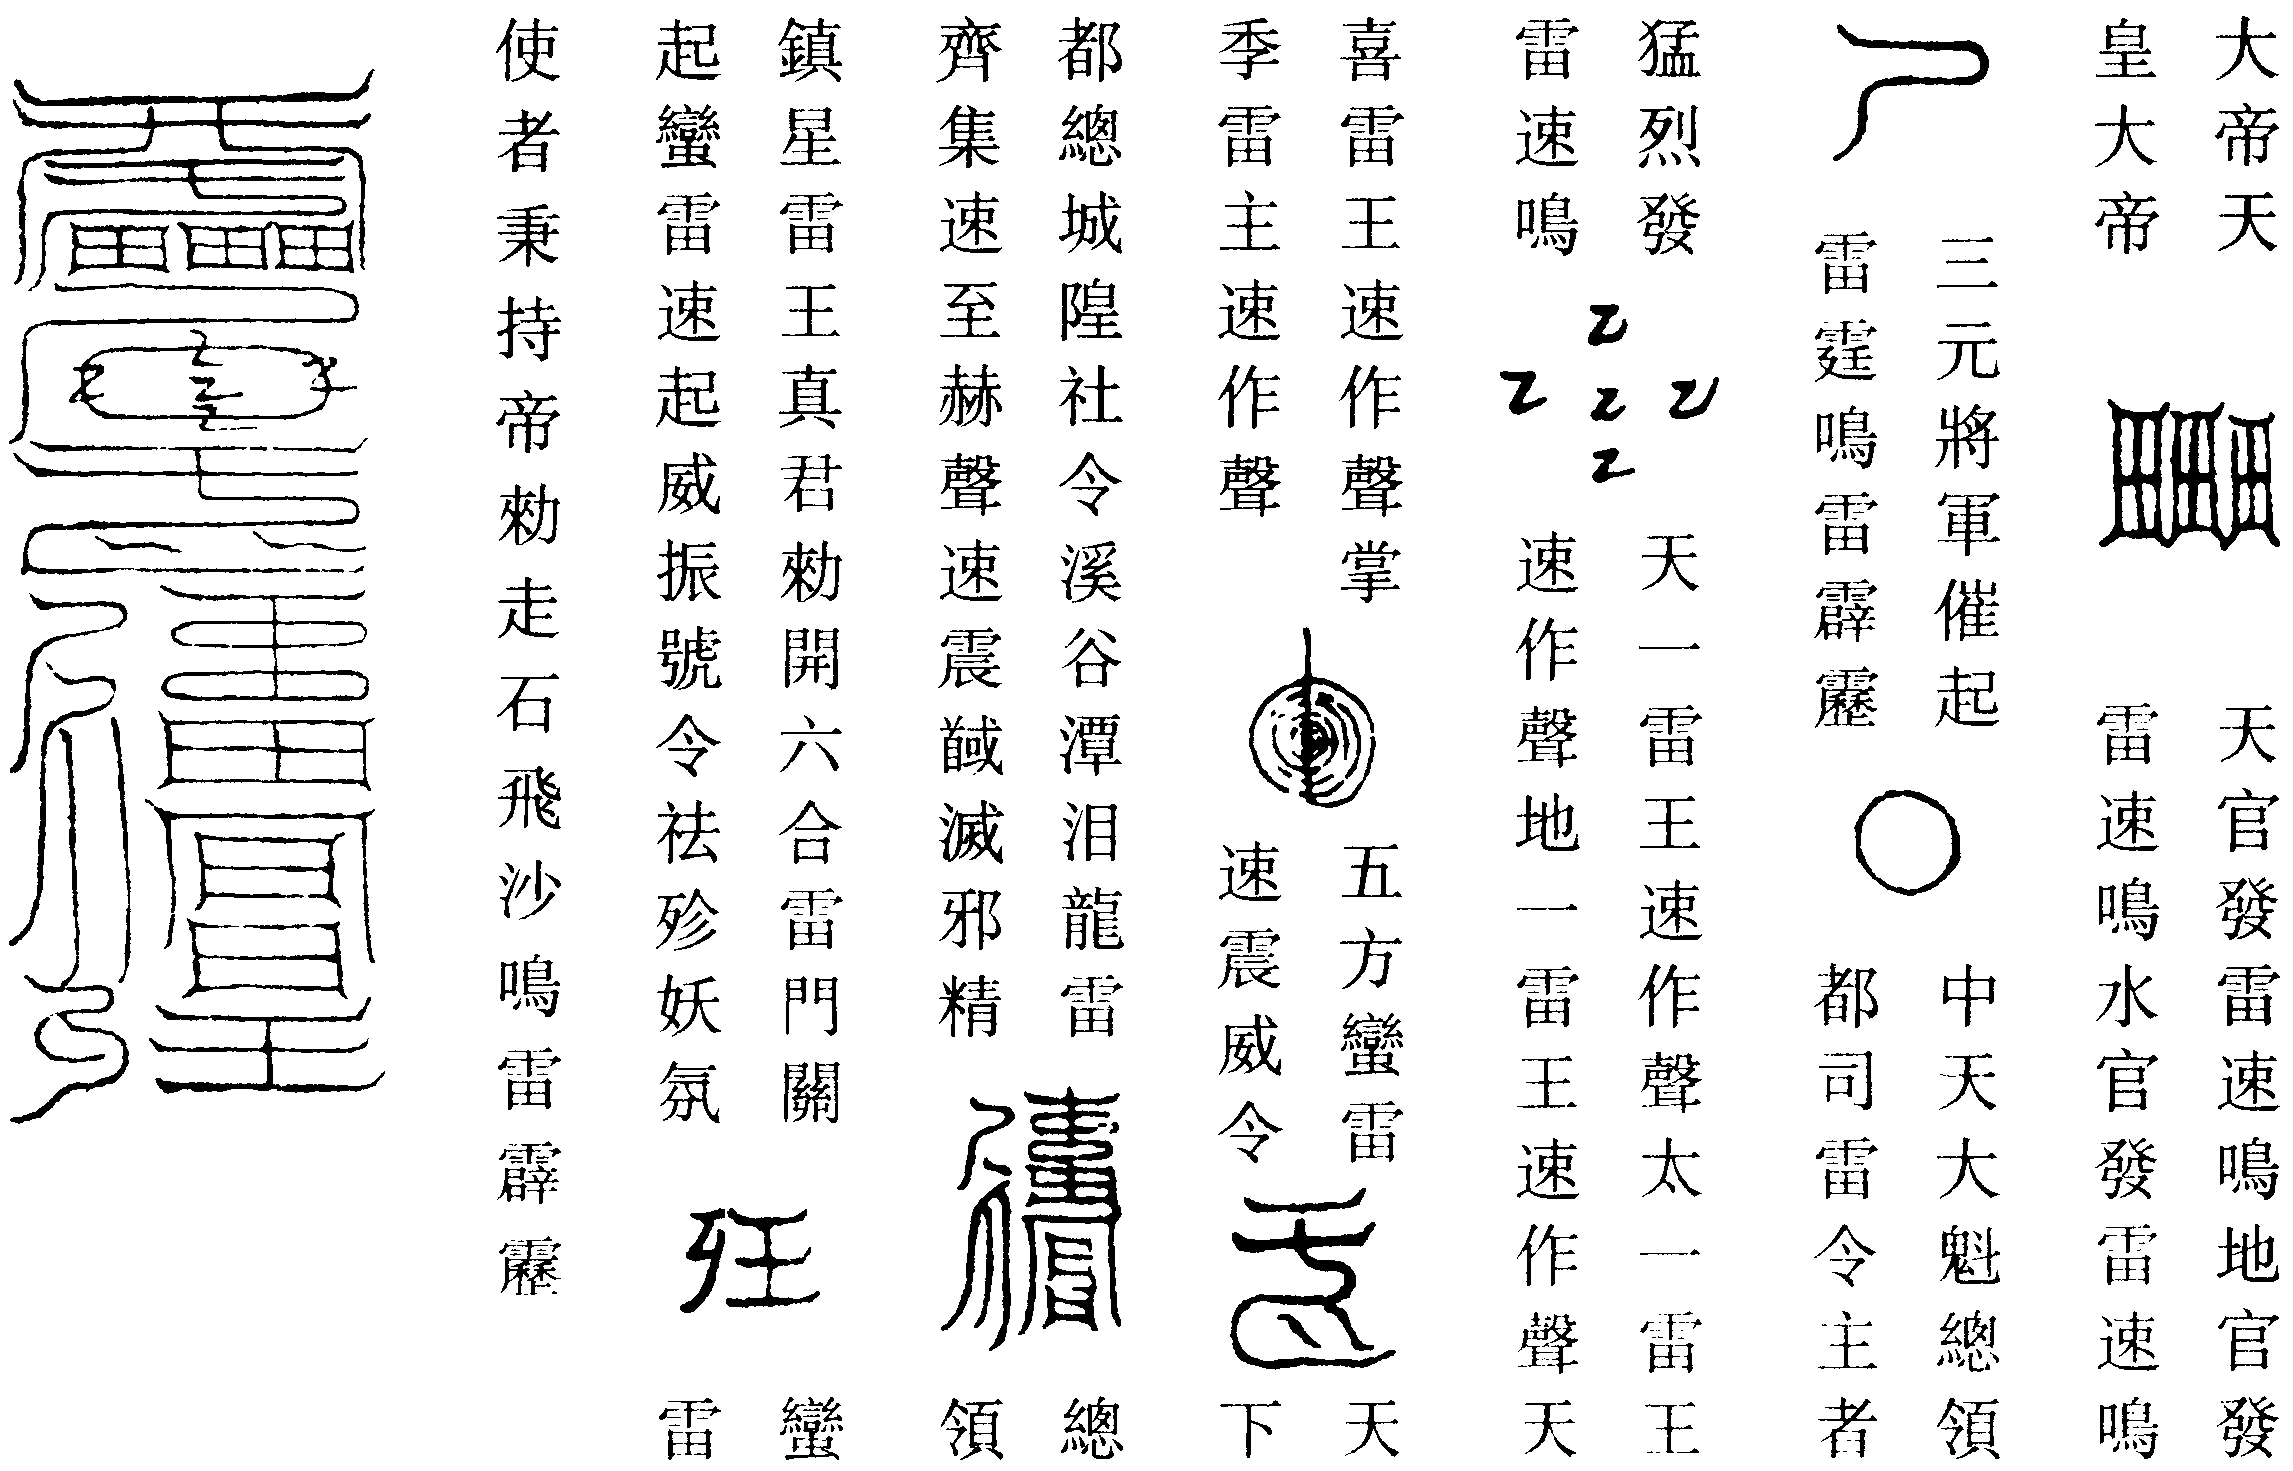 大帝天
皇大帝
天官發雷速鳴地官發
雷速鳴水官發雷速鳴
三元將軍催起
雷霆鳴雷霹靂
中天大魁總領
都司雷令主者
猛烈發
雷速鳴
天一雷王速作聲太一雷王
速作聲地一雷王速作聲天
喜雷王速作聲掌
季雷主速作聲
五方蠻雷
速震威令
天
下
都總城隍社令溪谷潭泪龍雷
齊集速至赫聲速震馘滅邪精
總
領
鎮星雷王真君勑開六合雷門關
起蠻雷速起威振號令祛殄妖氛
蠻
雷
使者秉持帝勑走石飛沙鳴雷霹靂